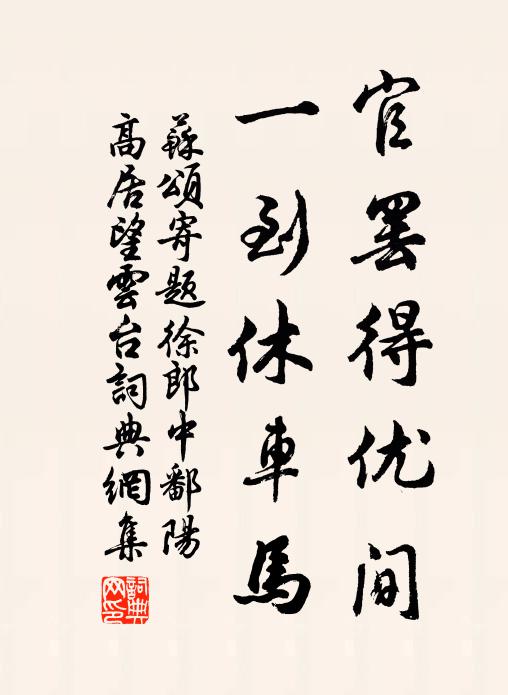 官罢得优间
一到休車馬
蘇頌寄題徐郎中鄱陽
高居望雲台詞典網集
詞典网印